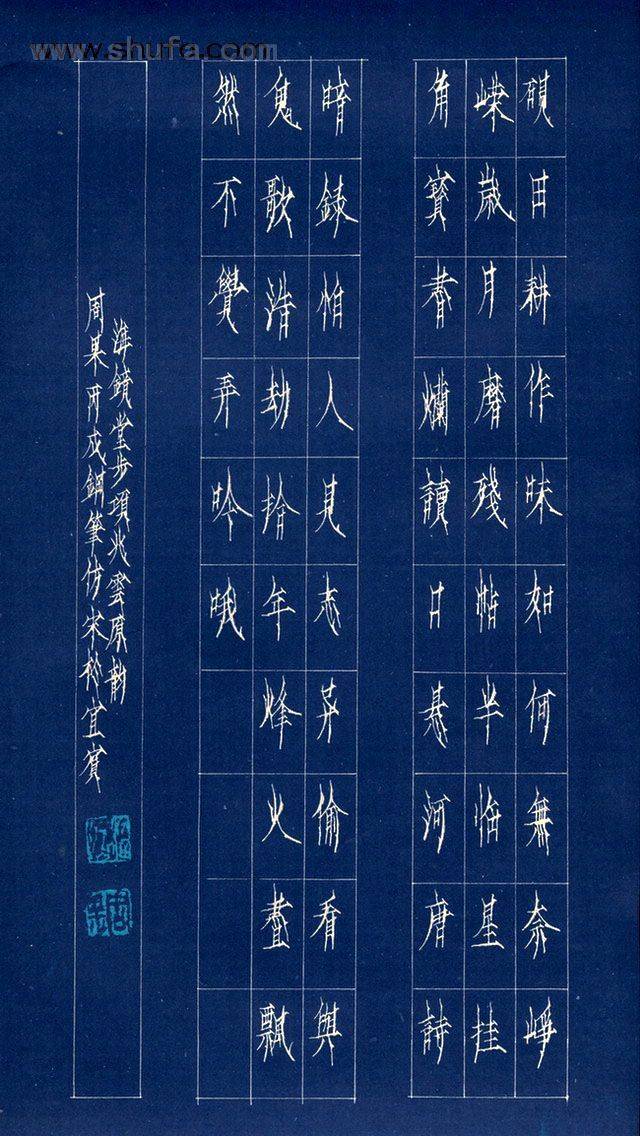 www.shufa.com
硯田耕作味如何無奈崢
嶸歲月磨殘帖半悟星挂
角寶書爛讀日懸河唐詩
暗錄怕人見志異偷看與
鬼歌浩劫拾年烽火盡飄
然不覺弄吟哦
海鏡堂步項兆雲原韵
周果丙戌鋼筆仿宋於宜賓